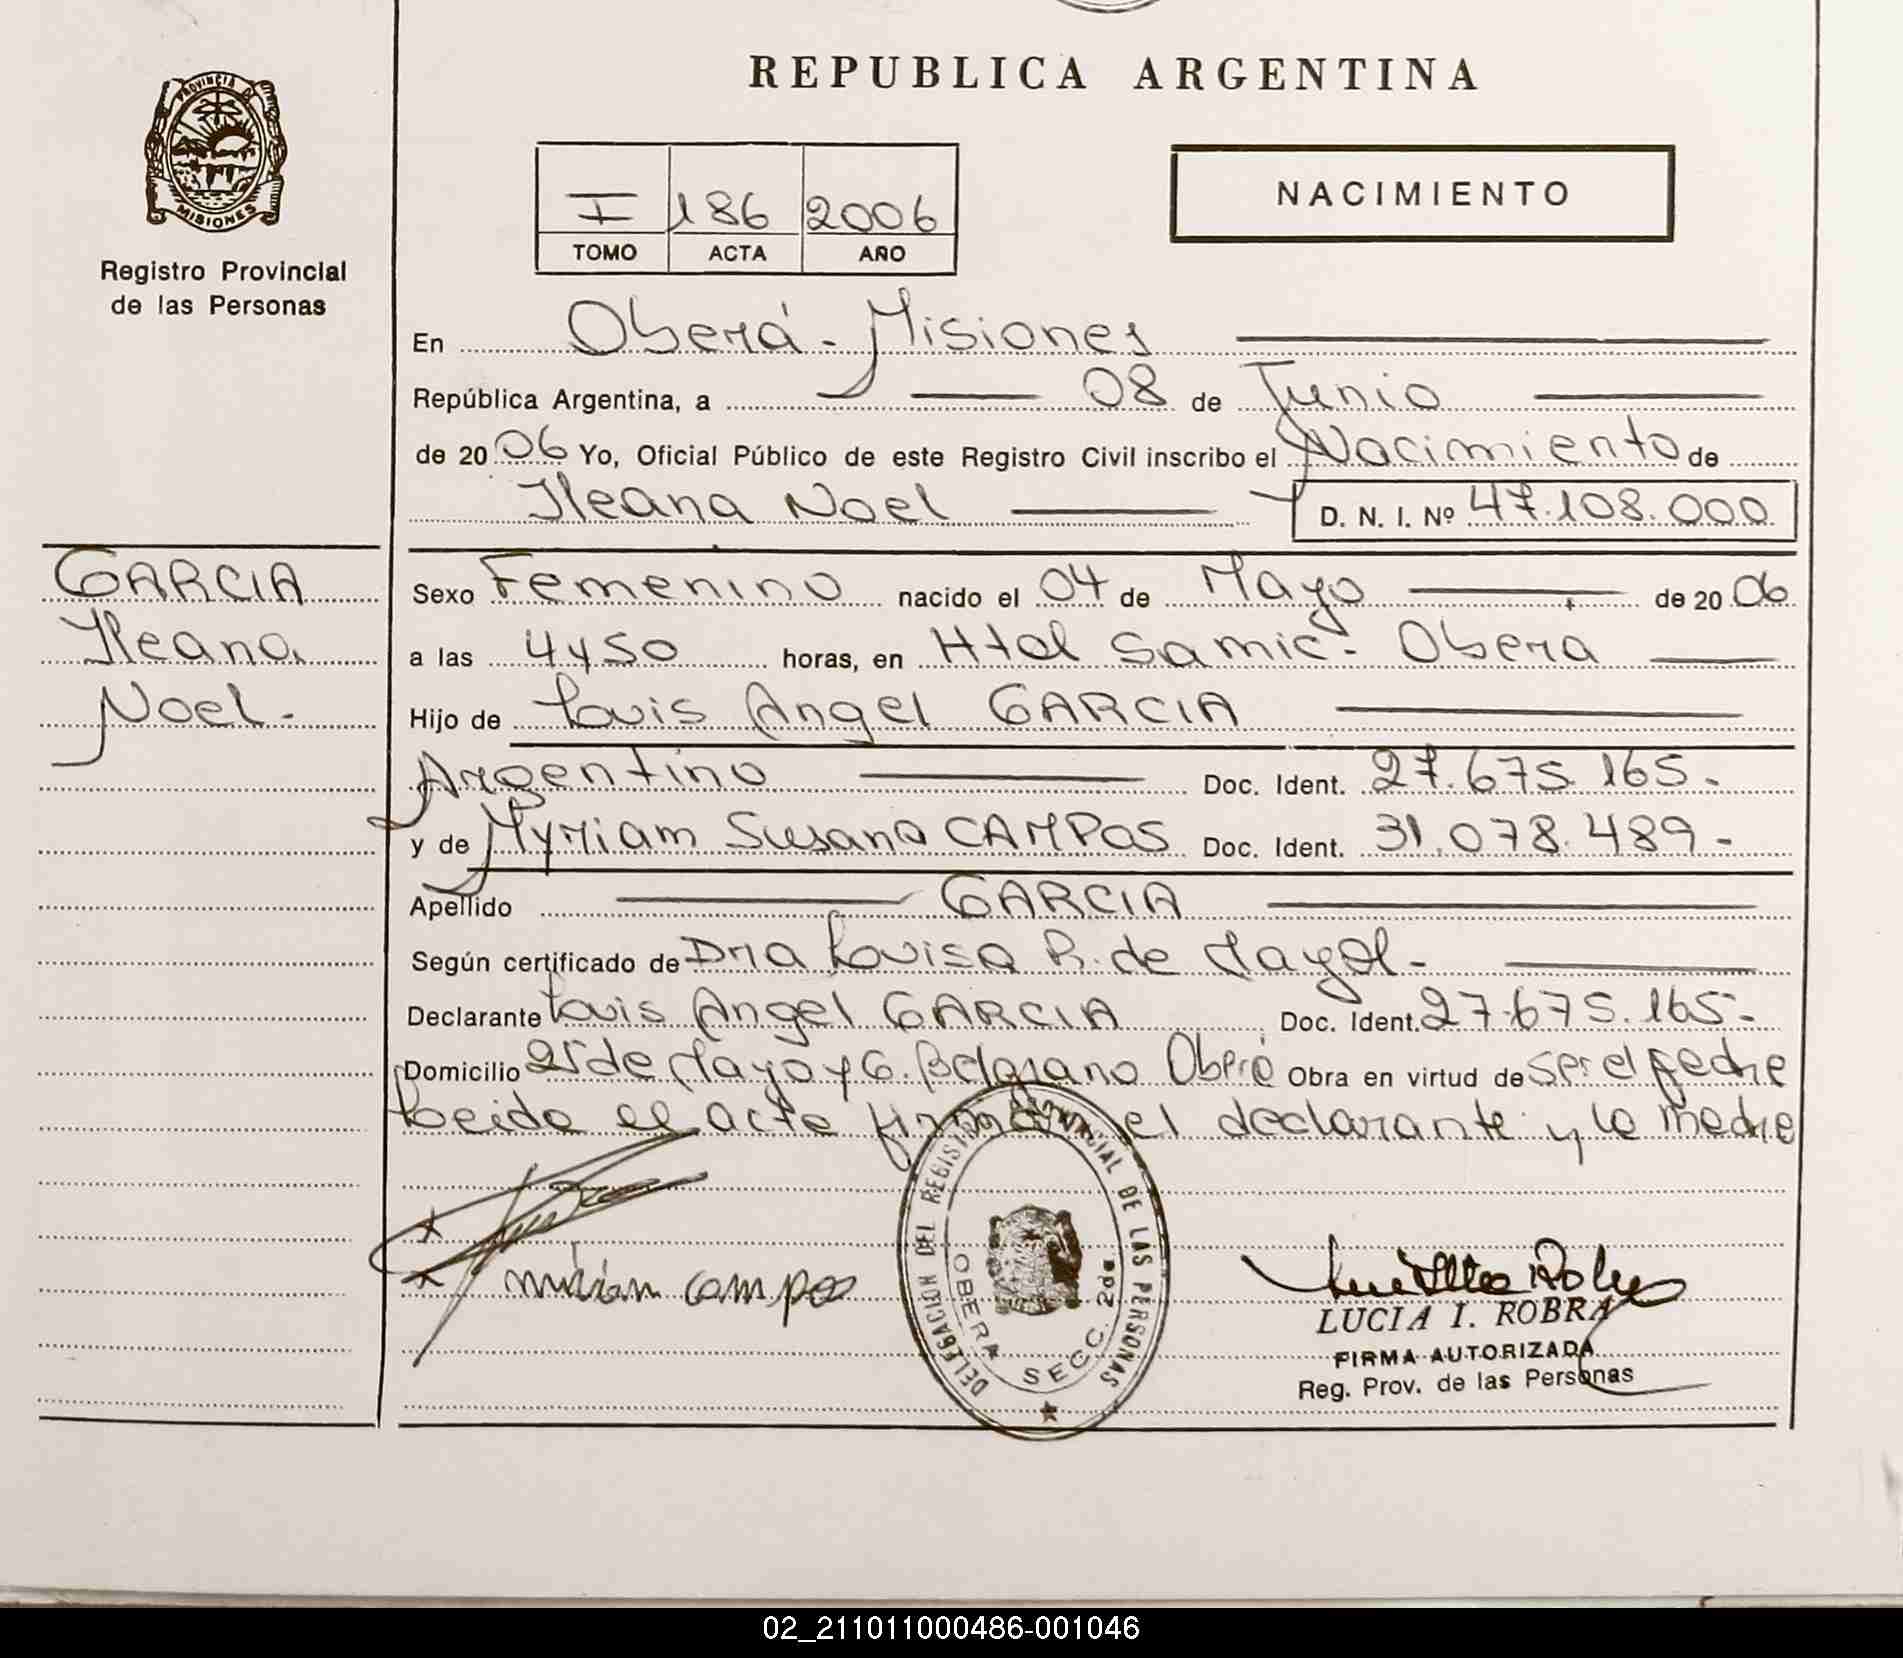 REPUBLICA ARGENTINA
PROVINCIA DE
MISIONES
Registro Provincial
de las Personas
I 186 2006
TOMO ACTA AÑO
NACIMIENTO
En Oberá - Misiones
República Argentina, a 08 de Junio
de 2006 Yo, Oficial Público de este Registro Civil inscribo el Nacimiento de
Ileana Noel D. N. I. Nº 47.108.000
GARCIA
Ileana
Noel.-
Sexo Femenino nacido el 04 de Mayo de 2006
a las 4 y 50 horas, en Htal Samic - Obera
Hijo de Louis Angel GARCIA
Argentino Doc. Ident. 27.675.165.-
y de Myriam Susana CAMPOS Doc. Ident. 31.078.489-
Apellido GARCIA
Según certificado de Dra Louisa R. de Mayol-
Declarante Louis Angel GARCIA Doc. Ident. 27.675.165-
Domicilio 25 de Mayo y G. Belgrano Oberá Obra en virtud de ser el padre
Leida el acta firman el declarante y la madre
miriam campos
DELEGACION DEL REGISTRO PROVINCIAL DE LAS PERSONAS
OBERA SECC. 2da.
LUCIA I. ROBRA
FIRMA AUTORIZADA
Reg. Prov. de las Personas
02_211011000486-001046